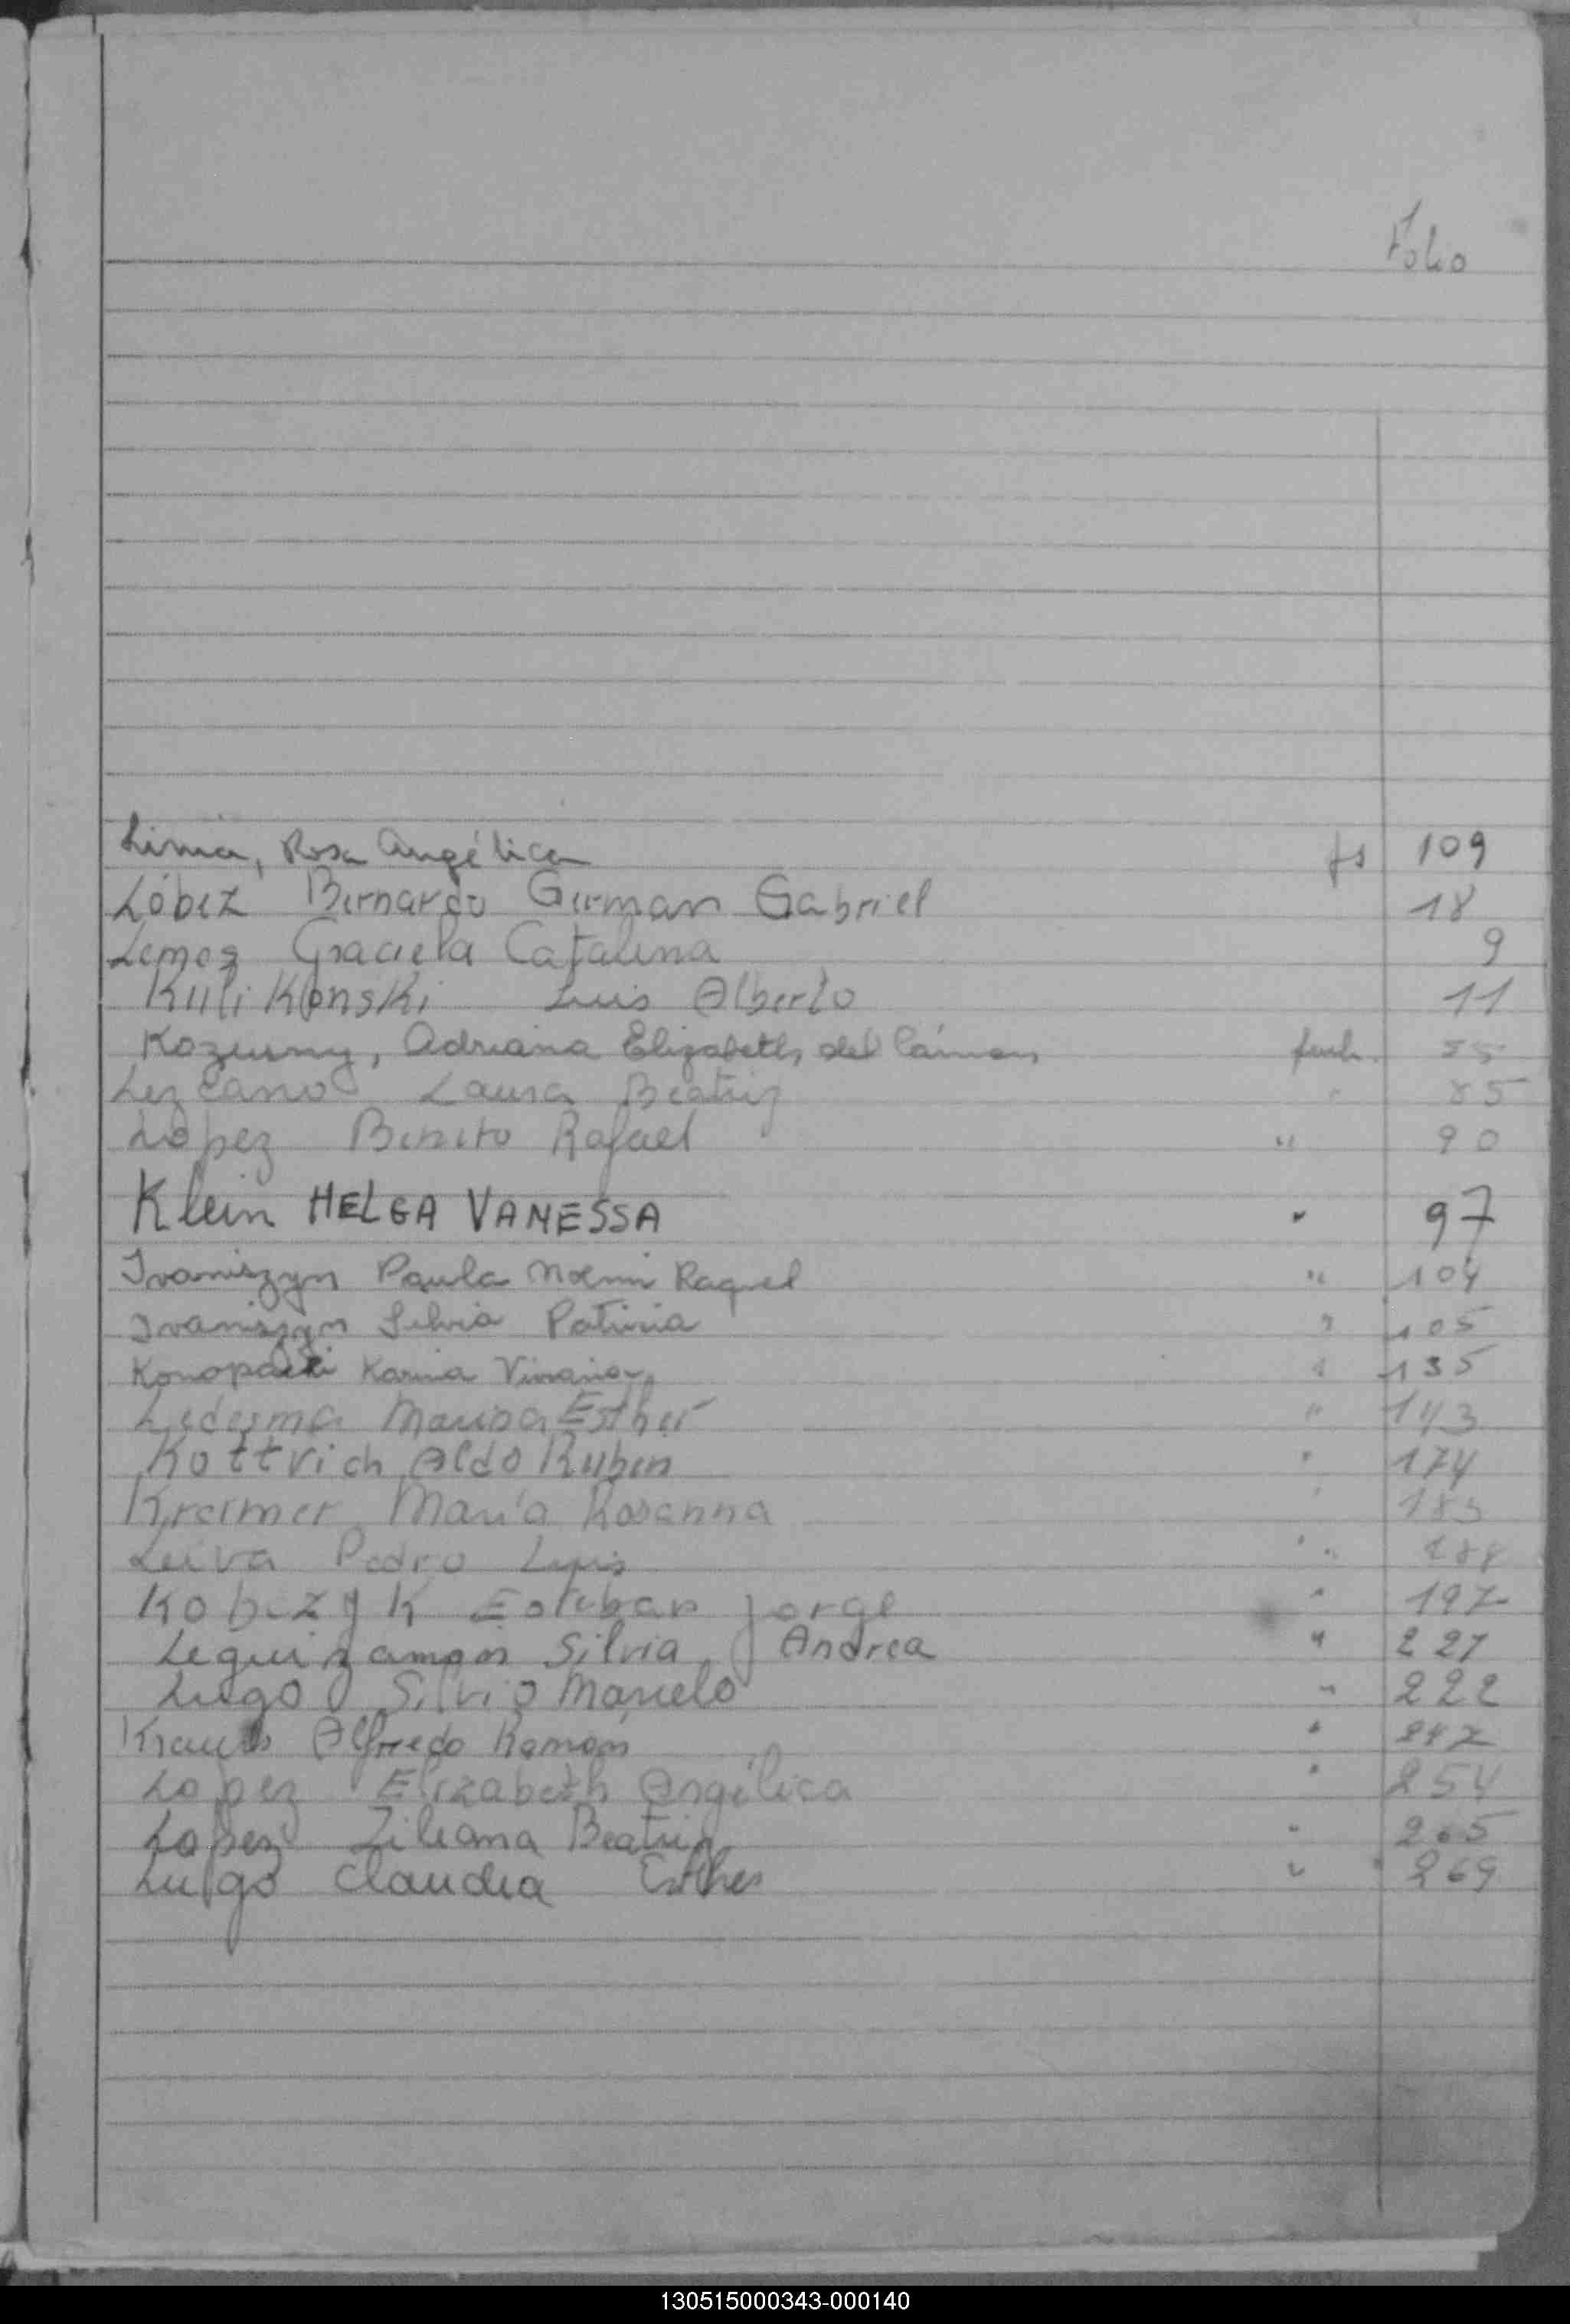 Folio
Lima, Rosa Angélica fs 109
Lópéz Bernardo German Gabriel 18
Lemos Graciela Catalina 9
Kulikonski Luis Alberto 11
Kozusny, Adriana Elizabeth del Cármen 55
Lezcano Laura Beatriz " 85
López Benito Rafael " 90
Klein HELGA VANESSA " 97
Ivaniszyn Paula Noemi Raquel " 104
Ivaniszyn Silvia Patricia " 105
Konopacki Karina Viviana " 135
Ledesma Marisa Esther " 143
Kottvich Aldo Ruben " 174
Kreimer María Rosanna " 183
Leiva Pedro Luis " 188
Kobezyk Esteban Jorge " 197
Leguizamon Silvia Andrea " 221
Lugo Silvio Marcelo " 222
Krauss Alfredo Ramón " 247
Lopez Elizabeth Angélica " 254
Lopez Liliana Beatriz " 265
Lugo Claudia Esther " 269
130515000343-000140